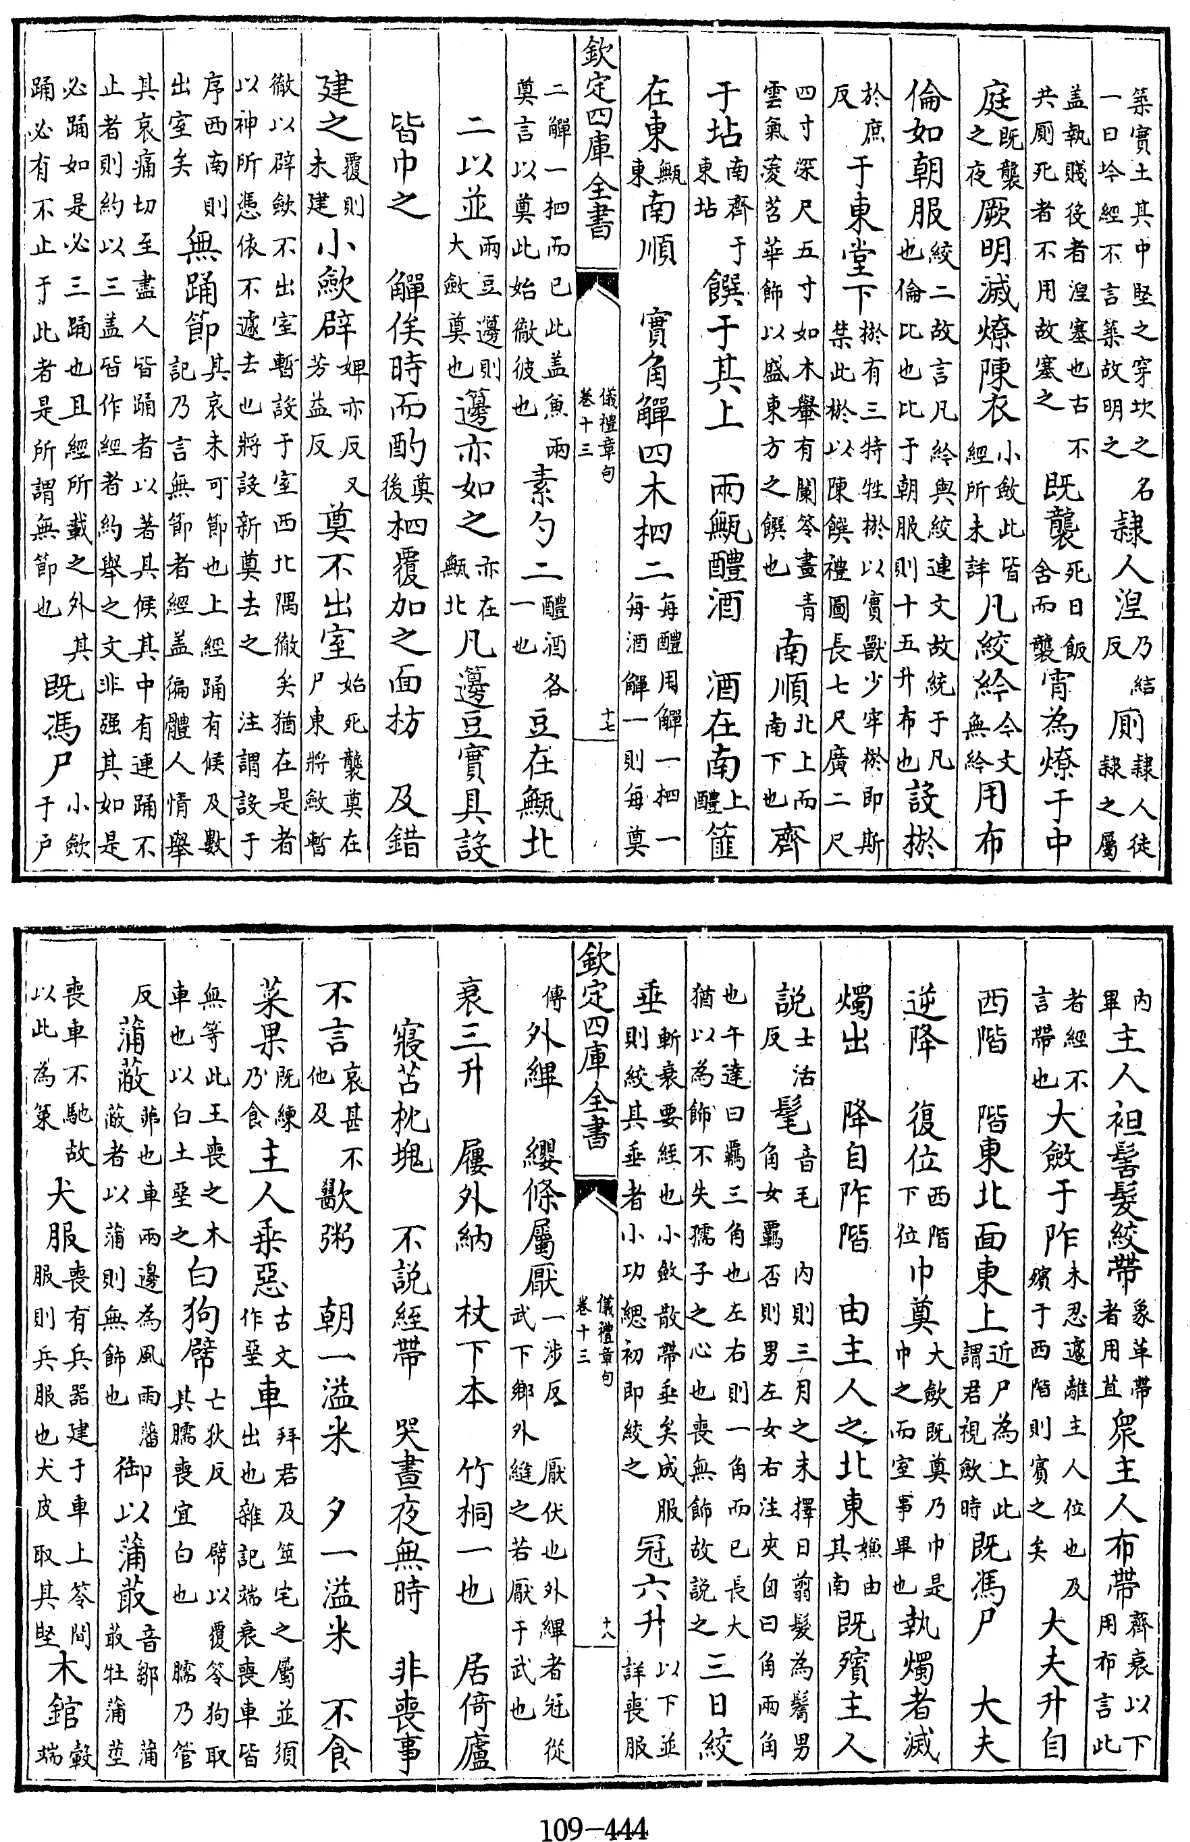 築實土其中堅之穿坎之名一曰坅經不言築故明之隸人湼乃結反廁隸人徒隸之屬
盖執賤役者湼塞也古不共廁死者不用故塞之既襲死日飯含而襲宵為燎于中
庭既襲之夜厥明滅燎陳衣小斂此皆經所未詳凡絞紟今文無紟用布
倫如朝服絞二故言凡紟與絞連文故統于凡也倫比也比于朝服則十五升布也設棜
於庶反于東堂下棜有三特牲棜以實獸少牢棜即斯禁此棜以陳饌禮圖長七尺廣二尺
四寸深尺五寸如木轝有闌笭畫青雲氣菱苕華飾以盛東方之饌也南順北上而南下也齊
于坫南齊于東坫饌于其上 兩甒醴酒 酒在南上醴篚
在東甒東南順 實角觶四木柶二每醴用觶一柶一每酒觶一則每奠
欽定四庫全書 儀禮章句 卷十三 十七
二觶一柶而已此盖兼兩奠言以奠此始徹彼也素勺二醴酒各一也豆在甒北
二以並兩豆籩則大斂奠也籩亦如之亦在甒北凡籩豆實具設
皆巾之 觶俟時而酌奠後柶覆加之面枋 及錯
建之覆則未建小斂辟婢亦反又芳益反奠不出室始死襲奠在尸東將斂暫
徹以辟斂不出室暫設于室西北隅徹矣猶在是者以神所憑依不遽去也將設新奠去之 注謂設于
序西南則出室矣無踊節其哀未可節也上經踊有候及數記乃言無節者經盖徧體人情舉
其哀痛切至盡人皆踊者以著其候其中有連踊不止者則約以三盖皆作經者約舉之文非强其如是
必踊如是必三踊也且經所載之外其踊必有不止于此者是所謂無節也既馮尸小斂于户
内畢主人袒髻髮絞帶象革帶者用苴衆主人布帶齊衰以下用布言此
者經不言帶也大斂于阼未忍遽離主人位也及殯于西階則賓之矣大夫升自
西階 階東北面東上近尸為上此謂君視斂時既馮尸 大夫
逆降 復位西階下位巾奠大斂既奠乃巾是巾之而室事畢也執燭者滅
燭出 降自阼階 由主人之北東燋由其南既殯主人
説士活反髦音毛 内則三月之末擇日翦髮為鬌男角女羈否則男左女右注夾囟曰角兩角
也午達曰羈三角也左右則一角而已長大猶以為飾不失孺子之心也喪無飾故説之三日絞
垂斬衰要絰也小斂散帶垂矣成服則絞其垂者小功緦初即絞之冠六升以下並詳喪服
欽定四庫全書 儀禮章句 卷十三 十八
傳外縪 纓條屬厭一涉反 厭伏也外縪者冠從武下鄉外縫之若厭于武也
衰三升 屨外納 杖下本 竹桐一也 居倚廬
寢苫枕塊 不説絰帶 哭晝夜無時 非喪事
不言哀甚不他及歠粥 朝一溢米 夕一溢米 不食
菜果既練乃食主人乘惡古文作堊車拜君及筮宅之屬並須出也雜記端衰喪車皆
無等此王喪之木車也以白土堊之白狗幦亡狄反 幦以覆笭狗取其臑喪宜白也 臑乃管
反蒲蔽第也車兩邊為風雨藩蔽者以蒲則無飾也御以蒲菆音鄒 蒲菆牡蒲莖
喪車不馳故以此為策犬服喪有兵器建于車上笭間服則兵服也犬皮取其堅木錧轂端
109-444